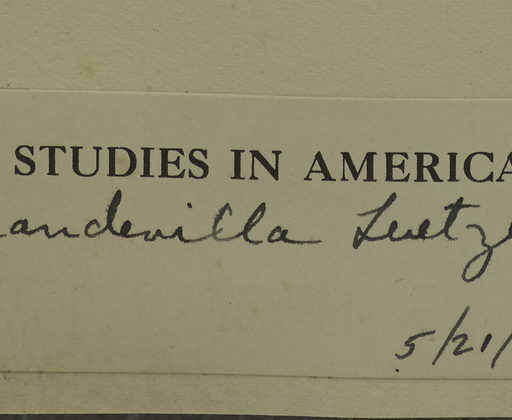 STUDIES IN AMERICA
andevilla Luetz
5/21/